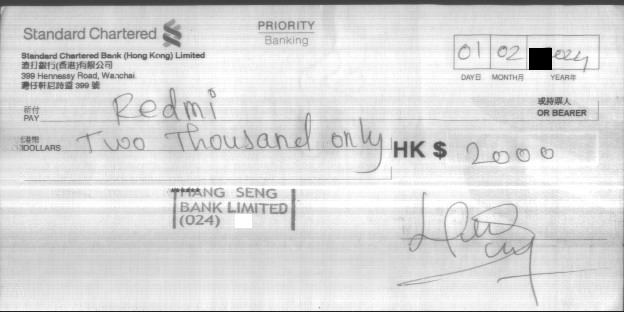 Standard Chartered
PRIORITY
Banking
Standard Chartered Bank (Hong Kong) Limited
渣打銀行(香港)有限公司
399 Hennessy Road, Wanchai
灣仔軒尼詩道 399 號
01 02 024
DAY日 MONTH月 YEAR年
祈付
PAY
Redmi
或持票人
OR BEARER
港幣
DOLLARS
Two Thousand only
HK $ 2000
HANG SENG
BANK LIMITED
(024)